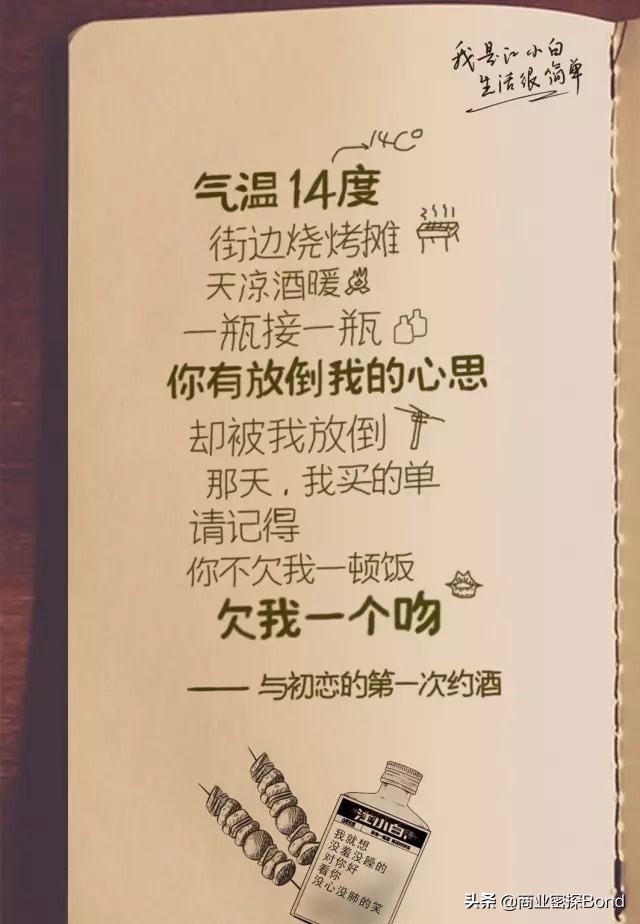 我是江小白
生活很简单
14C°
气温14度
街边烧烤摊
天凉酒暖
一瓶接一瓶
你有放倒我的心思
却被我放倒
那天，我买的单
请记得
你不欠我一顿饭
欠我一个吻
——与初恋的第一次约酒
江小白
我就想
没羞没躁的
对你好
看你
没心没肺的笑
头条 @商业密探Bond